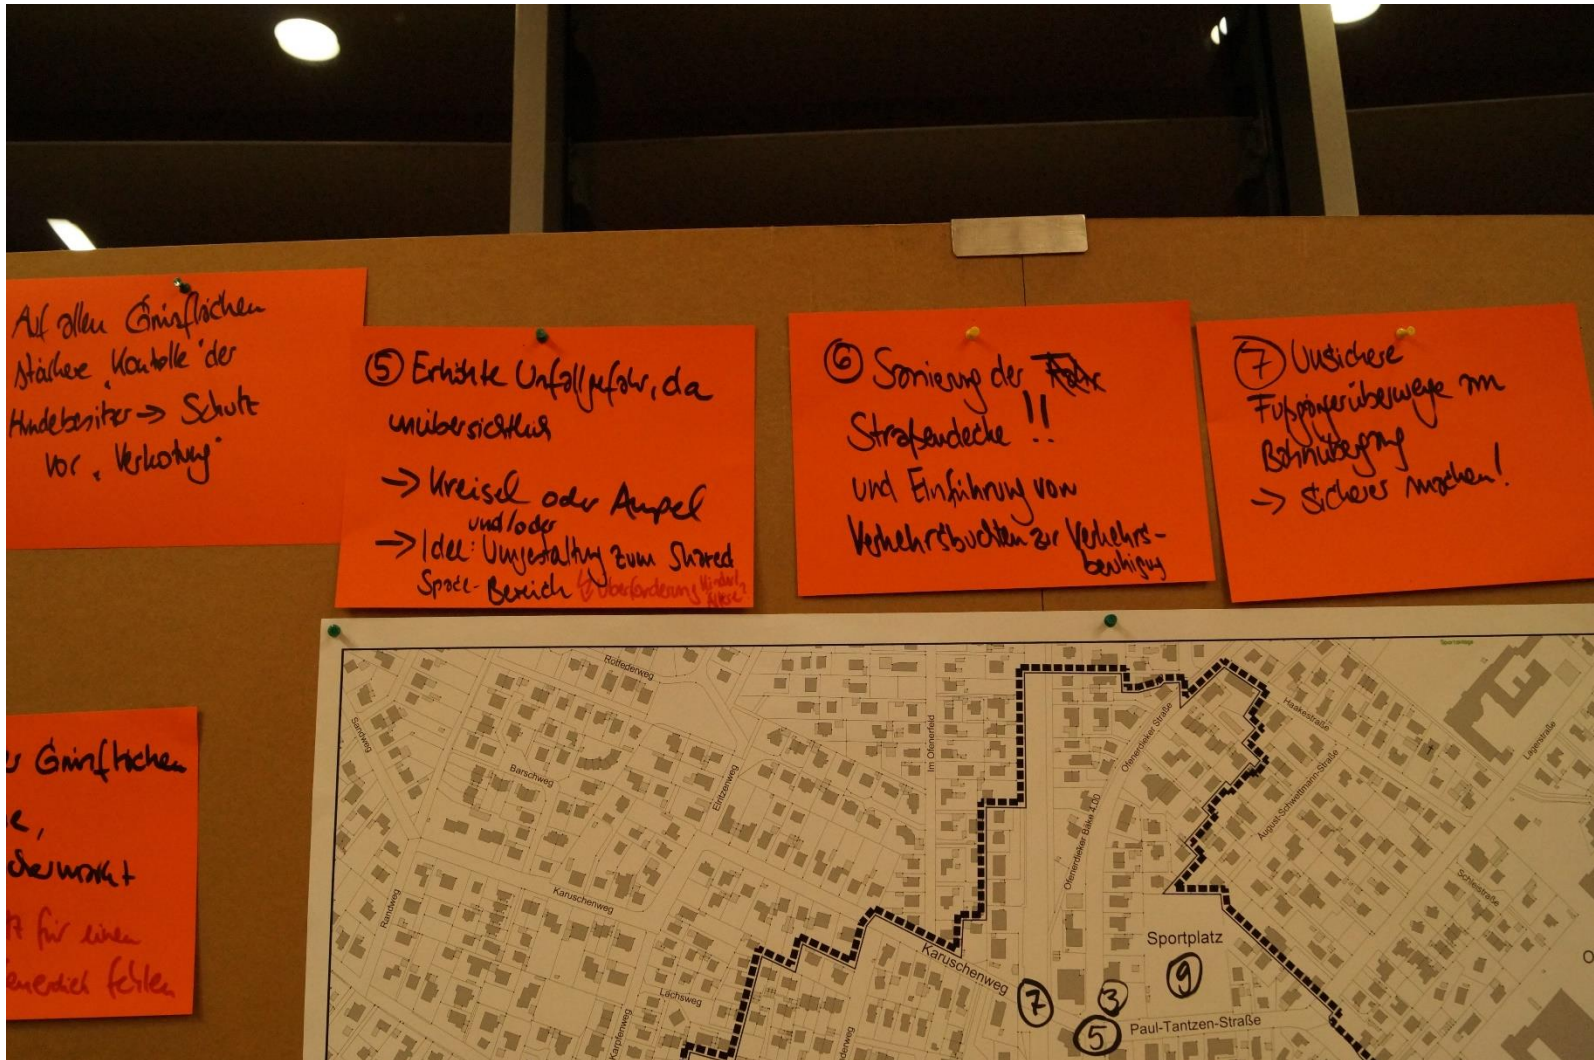 Auf allen Grünflächen
stärkere "Kontrolle" der
Hundebesitzer → Schutz
vor "Verkotung"
⑤ Erhöhte Unfallgefahr, da
unübersichtlich
→ Kreisel oder Ampel
und/oder
→ Idee: Umgestaltung zum Shared
Space-Bereich Überforderung Kinder
⑥ Sanierung der
Straßendecke !!
und Einführung von
Verkehrsbuchten zur Verkehrs-
beruhigung
⑦ Unsichere
Fußgängerüberwege am
Bahnübergang
→ sicherer machen!
Grünflächen
für einen
fehlen
Rotfederweg
Sandweg
Barschweg
Elritzenweg
Im Ofenerfeld
Ofenerdieker Straße
Haakestraße
Lagerstraße
August-Schwettmann-Straße
Ofenerdieker Bäke 4.00
Schleistraße
Randweg
Karuschenweg
Karuschenweg
Sportplatz
⑨
Lachsweg
Karpfenweg
derweg
⑦
③
⑤
Paul-Tantzen-Straße